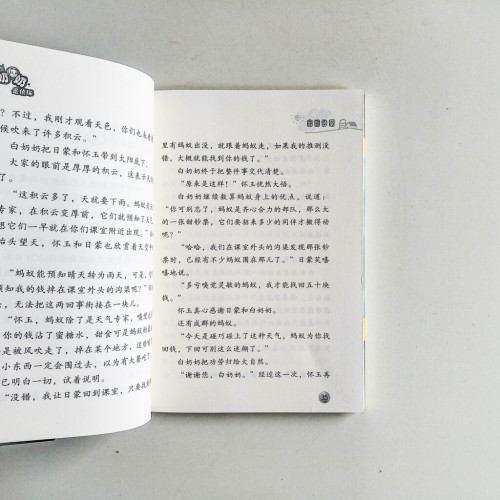 奶奶
是侦探
？不过，我刚才观看天色，你们也看
候吹来了许多积云。”
白奶奶把日蒙和怀玉带到太阳底下。
大家的眼前是厚厚的积云，这表示天
“这积云多了，天就要下雨。蚂蚁
专家，在积云变厚前，它们就预知了天
想它们一早就在你们课室附近出现。”
抬头望天，怀玉和日蒙也欣赏着天空
“蚂蚁能预知晴天转为雨天，可是，
预知我的钱掉在课室外头的沟渠呢？”
，无法把这两回事衔接在一块儿。
“怀玉，蚂蚁除了是天气专家，嗅觉
你的钱沾了蜜糖水，甜食可是蚂蚁的最
是被风吹走了，掉在某个地方，这些
小东西一定会围过去，以为有大餐吃了
已明白一切，试着说明。
“没错，我让日蒙回到课室，只要找
里有蚂蚁出没，就跟着蚂蚁走，如果我的推测没
错，大概就能找到你的钱了。”
白奶奶终于把整件事交代清楚。
“原来是这样！”怀玉恍然大悟。
白奶奶继续数算蚂蚁身上的优点，说道：
“你可别忘了，蚂蚁是齐心合力的部队，那么大
的一张甜钞票，它们要招来多少的同伴才搬得动
呢？”
“哈哈，我们在课室外头的沟渠发现那张钞
票时，已经有不少蚂蚁围在那儿了。”日蒙笑嘻
嘻地说。
“多亏嗅觉灵敏的蚂蚁，我才能找回五十块
钱。”
怀玉真心感谢日蒙和白奶奶。
还有成群的蚂蚁。
“今天是碰巧碰上了这种天气，蚂蚁为你找
回钱，下回可别这么迷糊了。”
白奶奶把功劳归给大自然。
“谢谢您，白奶奶。”经过这一次，怀玉再